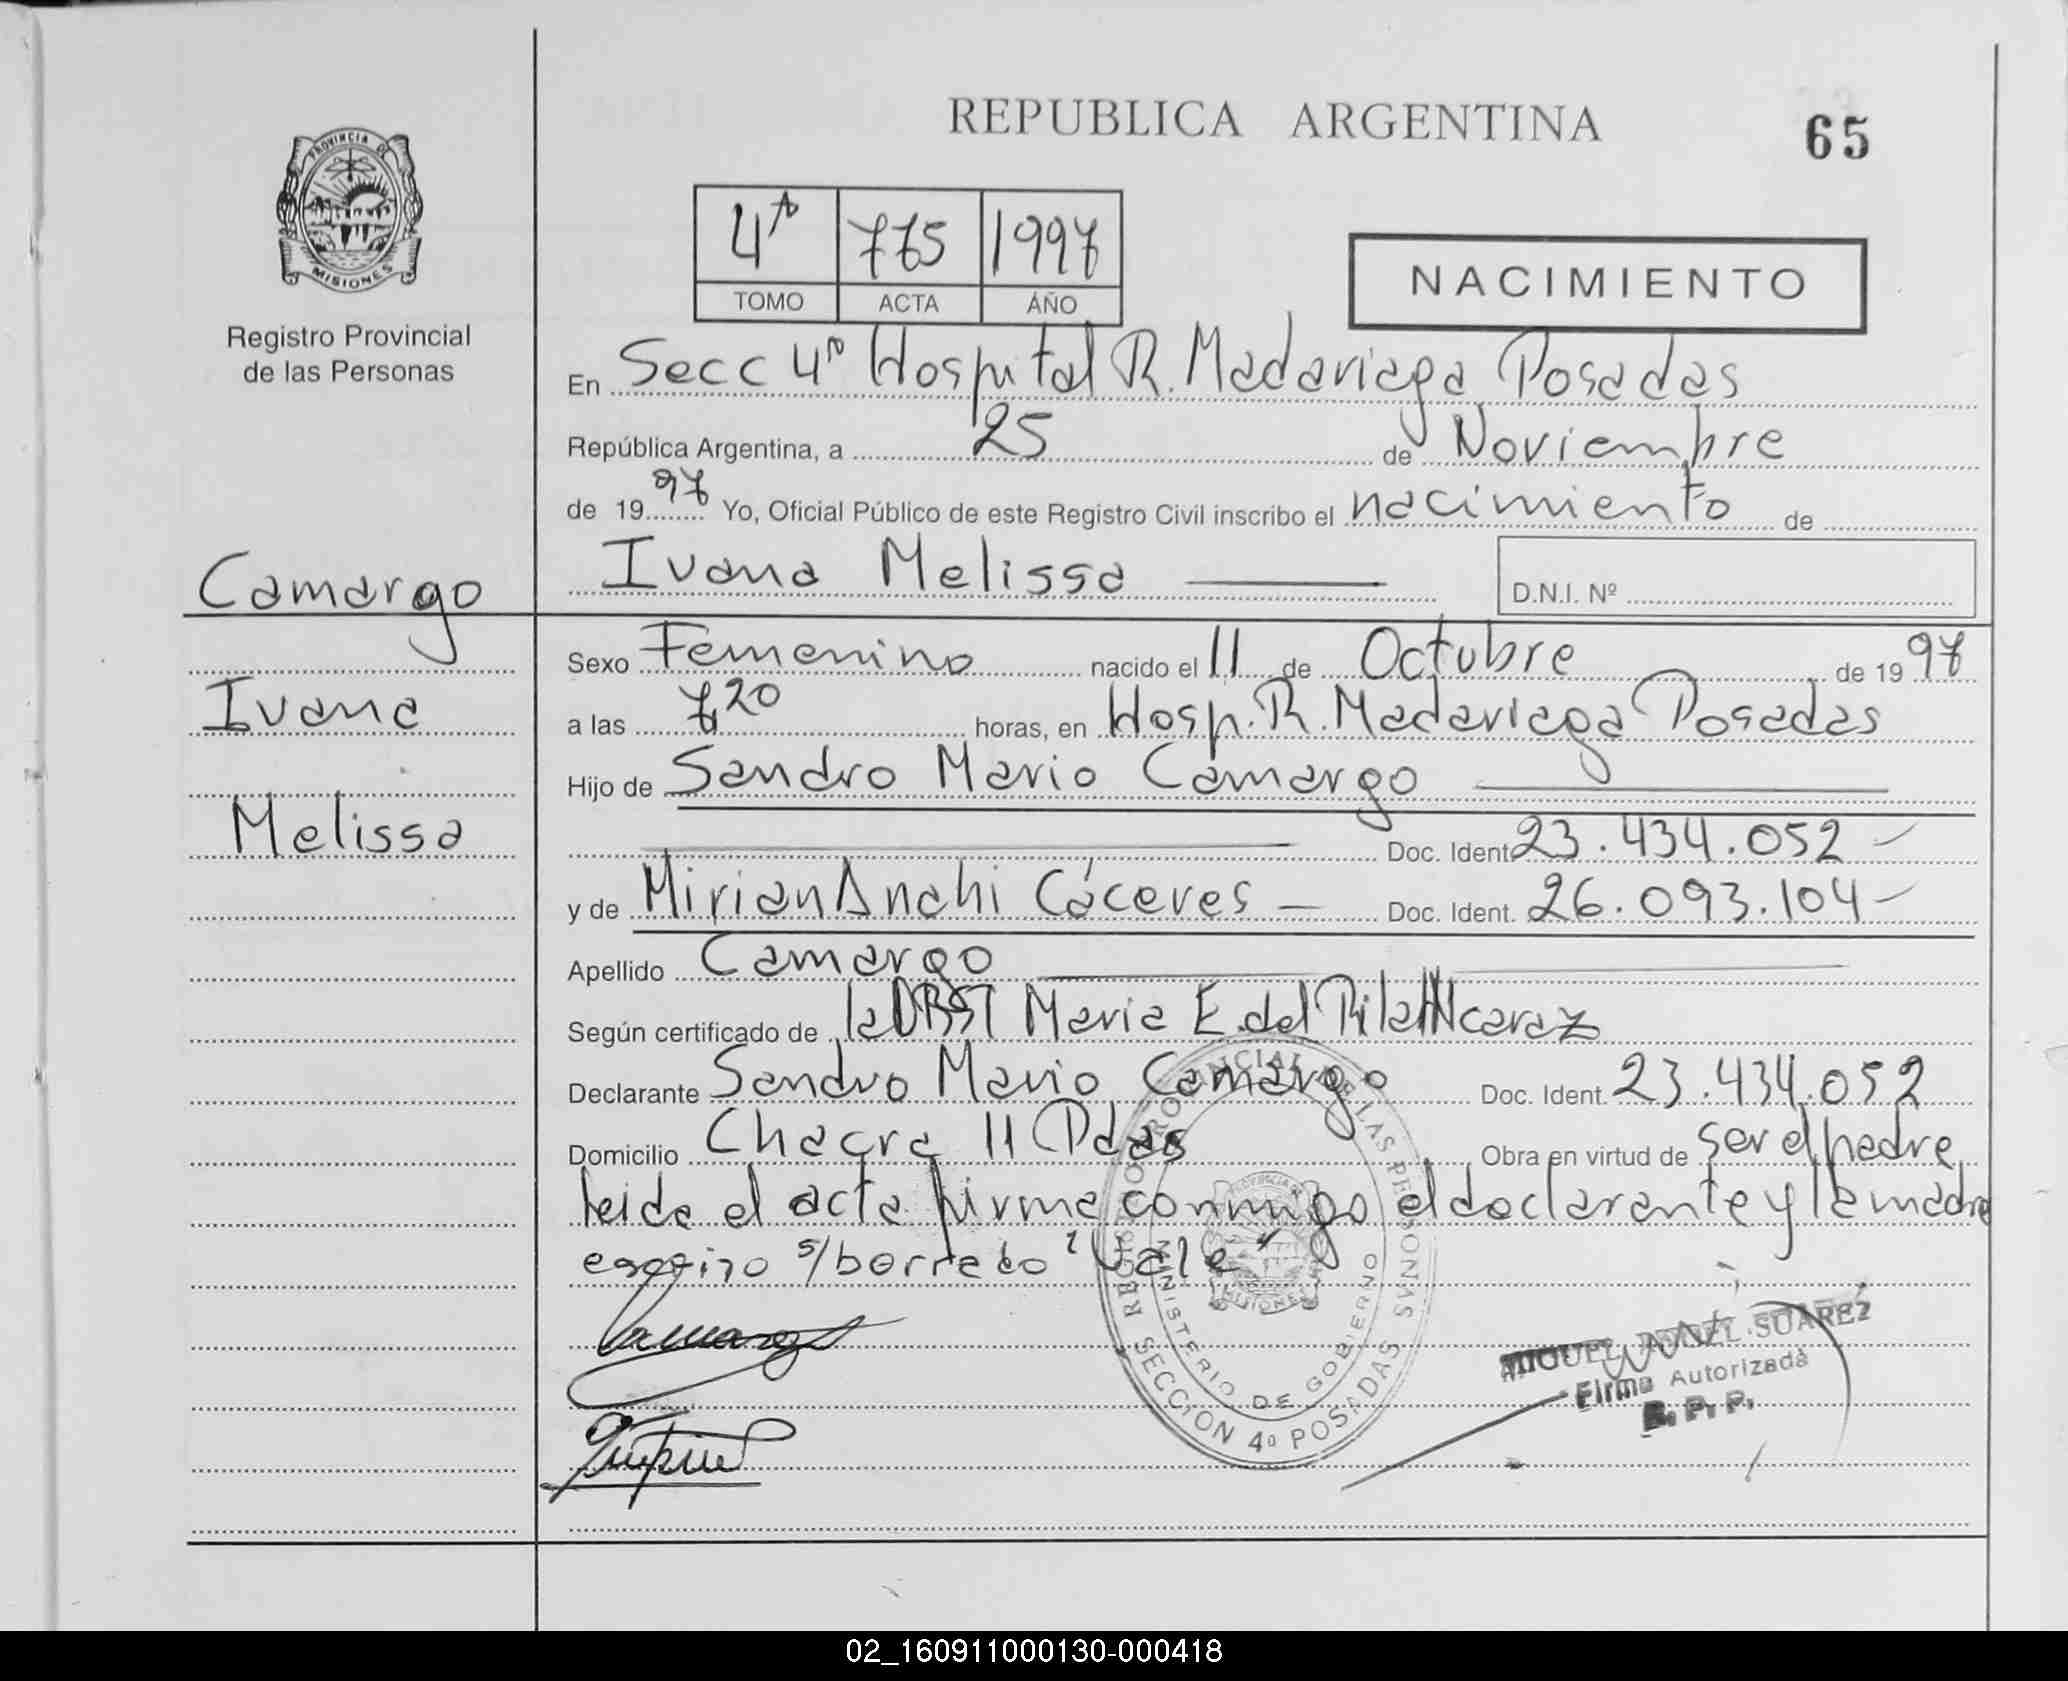 REPUBLICA ARGENTINA
65
PROVINCIA DE
MISIONES
Registro Provincial
de las Personas
4ª 775 1997
TOMO ACTA AÑO
NACIMIENTO
En Secc 4ª Hospital R. Madariaga Posadas
República Argentina, a 25 de Noviembre
de 1997 Yo, Oficial Público de este Registro Civil inscribo el nacimiento de
Ivana Melissa
D.N.I. Nº
Camargo
Ivana
Melissa
Sexo Femenino nacido el 11 de Octubre de 1997
a las 7,20 horas, en Hosp. R. Madariaga Posadas
Hijo de Sandro Mario Camargo
Doc. Ident. 23.434.052
y de Mirian Anahi Cáceres Doc. Ident. 26.093.104
Apellido Camargo
Según certificado de la OBST Maria E. del Pilar Alcaraz
Declarante Sandro Mario Camargo Doc. Ident. 23.434.052
Domicilio Chacra 11 Pdas Obra en virtud de ser el padre
leida el acta firma conmigo el declarante y la madre
s/borrado "Vale"
Camargo
REGISTRO PROVINCIAL DE LAS PERSONAS
SECCION 4ª POSADAS
MINISTERIO DE GOBIERNO
PROVINCIA DE
MISIONES
MIGUEL ANGEL SUAREZ
Firma Autorizada
R. P. P.
02_160911000130-000418